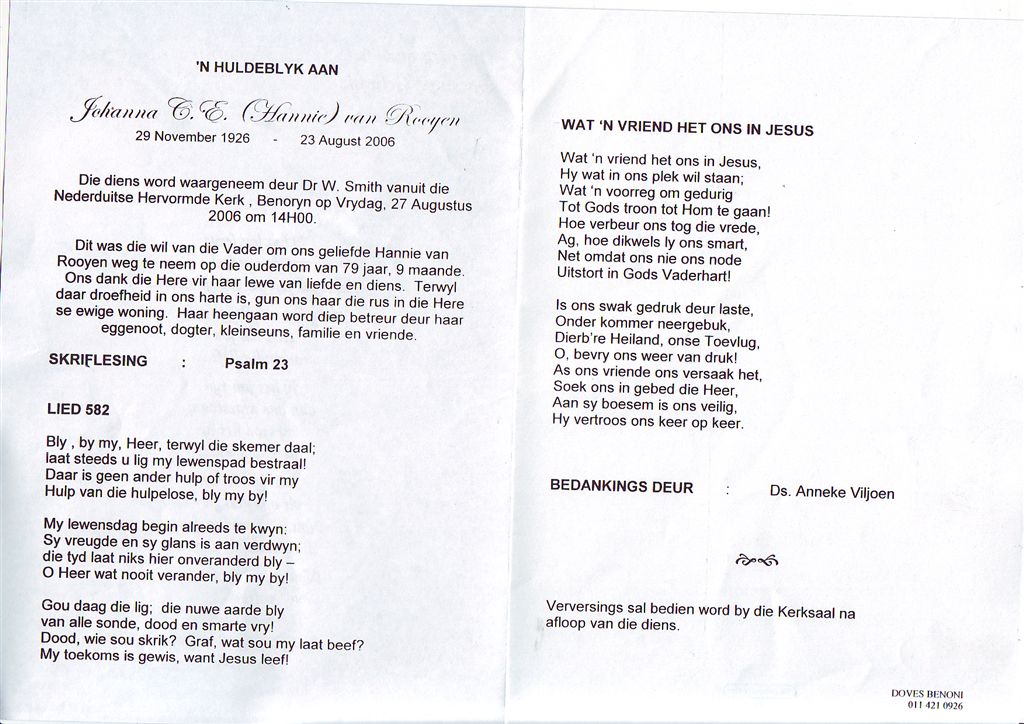 'N HULDEBLYK AAN
Johanna C.E. (Hannie) van Rooyen
29 November 1926 - 23 August 2006
Die diens word waargeneem deur Dr W. Smith vanuit die
Nederduitse Hervormde Kerk , Benoryn op Vrydag, 27 Augustus
2006 om 14H00.
Dit was die wil van die Vader om ons geliefde Hannie van
Rooyen weg te neem op die ouderdom van 79 jaar, 9 maande.
Ons dank die Here vir haar lewe van liefde en diens. Terwyl
daar droefheid in ons harte is, gun ons haar die rus in die Here
se ewige woning. Haar heengaan word diep betreur deur haar
eggenoot, dogter, kleinseuns, familie en vriende.
SKRIFLESING : Psalm 23
LIED 582
Bly , by my, Heer, terwyl die skemer daal;
laat steeds u lig my lewenspad bestraal!
Daar is geen ander hulp of troos vir my
Hulp van die hulpelose, bly my by!
My lewensdag begin alreeds te kwyn:
Sy vreugde en sy glans is aan verdwyn;
die tyd laat niks hier onveranderd bly –
O Heer wat nooit verander, bly my by!
Gou daag die lig; die nuwe aarde bly
van alle sonde, dood en smarte vry!
Dood, wie sou skrik? Graf, wat sou my laat beef?
My toekoms is gewis, want Jesus leef!
WAT 'N VRIEND HET ONS IN JESUS
Wat 'n vriend het ons in Jesus,
Hy wat in ons plek wil staan;
Wat 'n voorreg om gedurig
Tot Gods troon tot Hom te gaan!
Hoe verbeur ons tog die vrede,
Ag, hoe dikwels ly ons smart,
Net omdat ons nie ons node
Uitstort in Gods Vaderhart!
Is ons swak gedruk deur laste,
Onder kommer neergebuk,
Dierb're Heiland, onse Toevlug,
O, bevry ons weer van druk!
As ons vriende ons versaak het,
Soek ons in gebed die Heer,
Aan sy boesem is ons veilig,
Hy vertroos ons keer op keer.
BEDANKINGS DEUR : Ds. Anneke Viljoen
Verversings sal bedien word by die Kerksaal na
afloop van die diens.
DOVES BENONI
011 421 0926